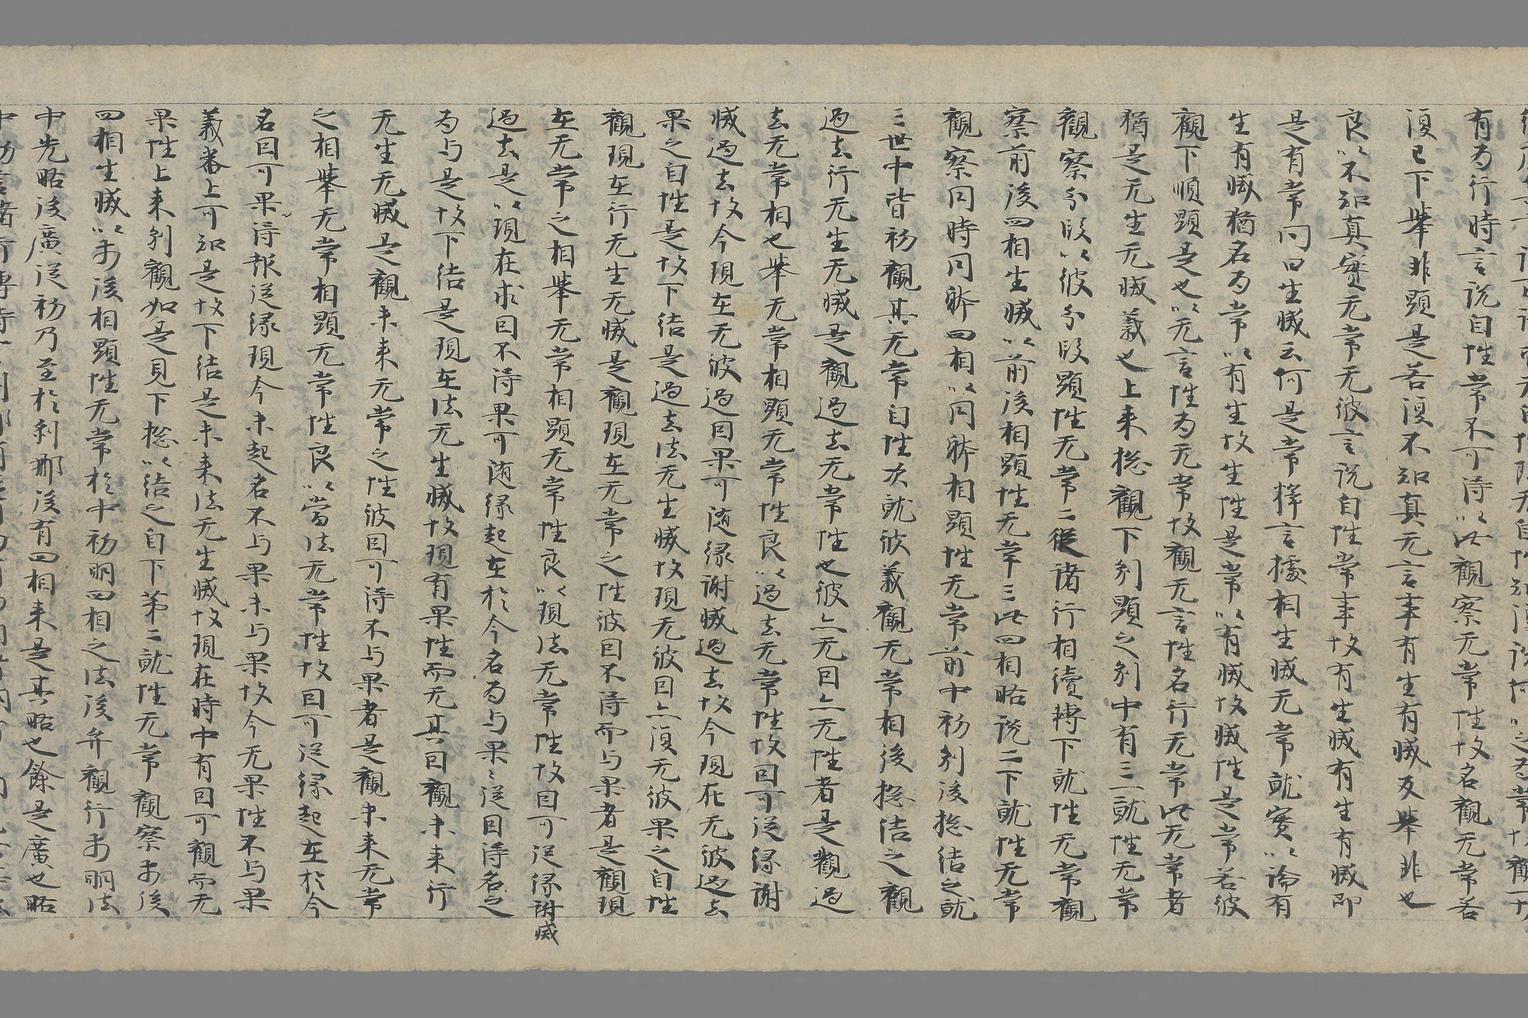 有為行時言說自性常不可得以此觀察无常性故名觀无常若
復已下舉非顯是若復不知真无言事有生有滅及舉非也
良以不知真實无常无彼言說自性常事故有生滅有生有滅即
是有常問曰生滅云何是常釋言據相生滅无常就實以論有
生有滅猶名為常以有生故生性是常以有滅故滅性是常若彼
觀下順顯是也以无言性為无常故觀无言性名行无常此无常者
猶是无生无滅義也上來捴觀下別顯之別中有三一就性无常
觀察分段以彼分段顯性无常二從諸行相續摶下就性无常觀
察前後四相生滅以前後相顯性无常三此四相略說二下就性无常
觀察同時同躰四相以同躰相顯性无常前中初別後捴結之就
三世中皆初觀其无常自性次就彼義觀无常相後捴結之觀
過去行无生无滅是觀過去无常性也彼亦无因亦无性者是觀過
去无常相也舉无常相顯无常性良以過去无常性故因可從緣謝
滅過去故今現在无彼過因果可随緣謝滅過去故今現在无彼過去
果之自性是故下結是過去法无生滅故現无彼因亦復无彼果之自性
觀現在行无生无滅是觀現在无常之性彼因不得而与果者是觀現
在无常之相舉无常相顯无常性良以現法无常性故因可從緣謝滅
過去是以現在求因不得果可随緣起在於今名為与果〻從因得名之
為与是故下結是現在法无生滅故現有果性而无其因觀未來行
无生无滅是觀未來无常之性彼因可得不与果者是觀未來无常
之相舉无常相顯无常性良以當法无常性故因可從緣起在於今
名因可果得報從緣現今未起名不与果未与果故今无果性不与果
義番上可知是故下結是未來法无生滅故現在時中有因可觀而无
果性上來別觀如是見下捴以結之自下第二就性无常觀察前後
四相生滅以前後相顯性无常於中初明四相之法後弁觀行前明法
中先略後廣從初乃至於刹那後有四相來是其略也餘是廣也略